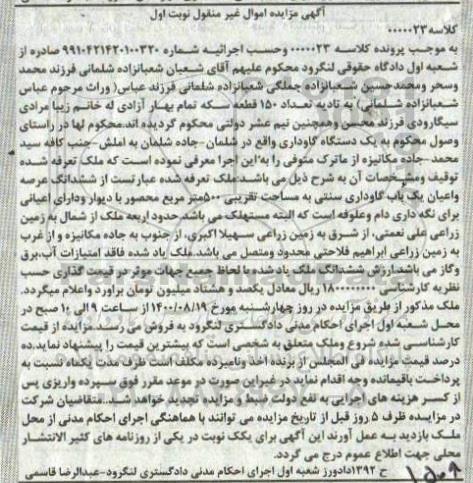 آگهی مزایده اموال غیر منقول نوبت اول
کلاسه ۰۰۰۰۰۲۳
به موجب پرونده کلاسه ۰۰۰۰۰۲۳ وحسب اجرائیه شماره ۹۹۱۰۴۲۱۴۲۰۱۰۰۳۲۰ صادره از
شعبه اول دادگاه حقوقی لنگرود محکوم علیهم آقای شعبان شعبانزاده شلمانی فرزند محمد
وسحر ومحمدحسین شعبانزاده جملگی شعبانزاده شلمانی فرزند عباس( وراث مرحوم عباس
شعبانزاده شلمانی) به تادیه تعداد ۱۵۰ قطعه سکه تمام بهار آزادی له خانم زیبا مرادی
سیگارودی فرزند محسن وهمچنین نیم عشر دولتی محکوم گردیده اند.محکوم لها در راستای
وصول محکوم به یک دستگاه گاوداری واقع در شلمان-جاده شلمان به املش-جنب کافه سید
محمد-جاده مکانیزه از ماترک متوفی را به این اجرا معرفی نموده است که ملک تعرفه شده
توقیف ومشخصات آن به شرح ذیل می باشد:ملک تعرفه شده عبارتست از ششدانگ عرصه
واعیان یک باب گاوداری سنتی به مساحت تقریبی ۵۰۰متر مربع محصور با دیوار ودارای اعیانی
برای نگه داری دام وعلوفه است که البته مستهلک می باشد.حدود اربعه ملک از شمال به زمین
زراعی علی نعمتی، از شرق به زمین زراعی سهیلا اکبری، از جنوب به جاده مکانیزه و از غرب
به زمین زراعی ابراهیم فلاحتی محدود ومتصل می باشد.ملک یاد شده فاقد امتیازات آب،برق
وگاز می باشد.ارزش ششدانگ ملک یاد شده با لحاظ جمیع جهات موثر در قیمت گذاری حسب
نظریه کارشناسی ۱۸۰۰۰۰۰۰۰ ریال معادل یکصد و هشتاد میلیون تومان برآورد واعلام میگردد.
ملک مذکور از طریق مزایده در روز چهارشنبه مورخ ۱۴۰۰/۰۸/۱۹ از ساعت ۹ الی ۱۰ صبح در
محل شعبه اول اجرای احکام مدنی دادگستری لنگرود به فروش می رسد.مزایده از قیمت
کارشناسی شده شروع وملک متعلق به شخصی است که بیشترین قیمت را پیشنهاد نماید.ده
درصد قیمت مزایده فی المجلس از برنده اخذ ونامبرده مکلف است ظرف مدت یکماه نسبت به
پرداخت باقیمانده وجه اقدام نماید در غیراین صورت در موعد مقرر فوق سپرده واریزی پس
از کسر هزینه های اجرایی به نفع دولت ضبط و مزایده تجدید خواهد شد. متقاضیان شرکت
در مزایده ظرف ۵ روز قبل از تاریخ مزایده می توانند با هماهنگی اجرای احکام مدنی از محل
ملک بازدید به عمل آورند این آگهی برای یکک نوبت در یکی از روزنامه های کثیر الانتشار
محلی جهت اطلاع عموم درج می گردد.
ح ۱۳۹۲دادورز شعبه اول اجرای احکام مدنی دادگستری لنگرود-عبدالرضا قاسمی